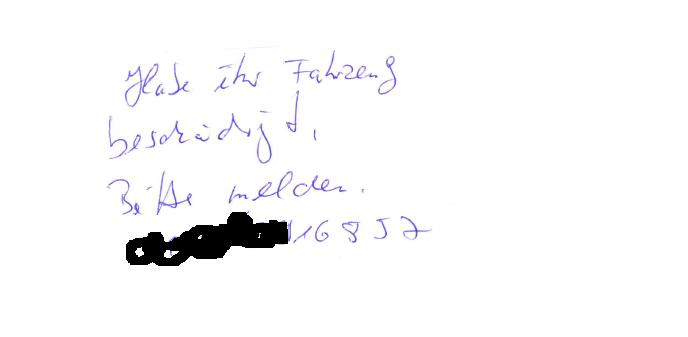 Habe ihr Fahrzeug
beschädigt.
Bitte melden.
16857